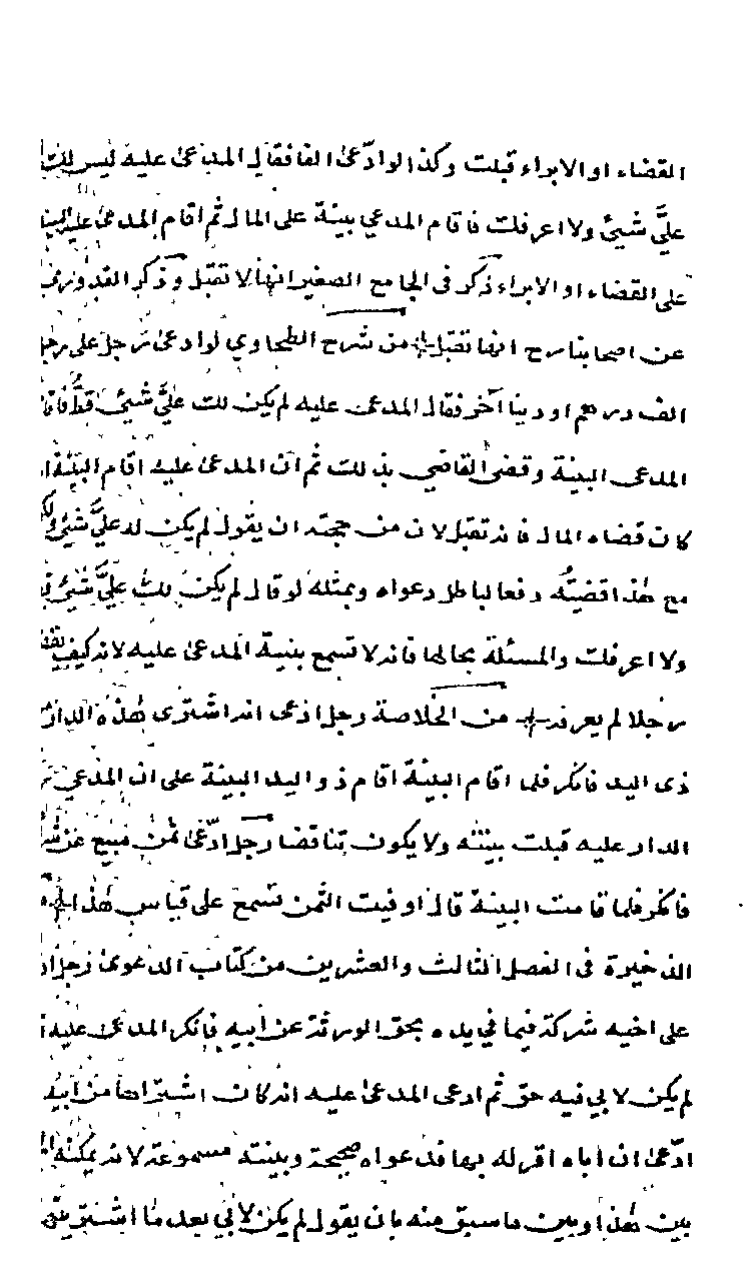 القضاء او الابراء قبلت وكذا لو ادّعىٰ الفا فقال المدعىٰ عليه ليس لك
عليَّ شيئ ولا اعرفك فاقام المدعي بينة على المال ثم اقام المدعىٰ عليه البينة
على القضاء او الابراء ذكر فى الجامع الصغير انها لا تقبل وذكر القدوري
عن اصحابنا رح انها تقبل من شرح الطحاوي لو ادعىٰ رجل على رجل
الف درهم او دينا آخر فقال المدعى عليه لم يكن لك عليَّ شيئ قطُّ فاقام
المدعى البينة وقضىٰ القاضي بذلك ثم ان المدعىٰ عليه اقام البينة
كان قضاه المال فانه تقبل لان من حجته ان يقول لم يكن له عليَّ شيئ ولكن
مع هٰذا قضيتُه دفعا لباطل دعواه وبمثله لو قال لم يكن لك عليَّ شيئ
ولا اعرفك والمسئلة بحالها فانه لا تسمع بنية المدعىٰ عليه لانه كيف
رجلا لم يعرفه من الخلاصة رجل ادعى انه اشترى هٰذه الدار
ذى اليد فانكر فلما اقام البينة اقام ذو اليد البينة على ان المدعي
الدار عليه قبلت بينته ولا يكون تناقضا رجل ادّعىٰ ثمن مبيع
فانكر فلما قامت البينة قال اوفيت الثمن تسمع على قياس هٰذا
الذخيرة فى الفصل الثالث والعشرين من كتاب الدعوىٰ رجل
على اخيه شركة فيما في يده بحق الورثة عن ابيه فانكر المدعىٰ عليه
لم يكن لابي فيه حق ثم ادعى المدعىٰ عليه انه كان اشتراها من ابيه
ادّعىٰ ان اباه اقر له بها فدعواه صحيحة وبينته مسموعة لانه يمكنه
بين هٰذا وبين ما سبق منه بان يقول لم يكن لأبي بعد ما اشتريته